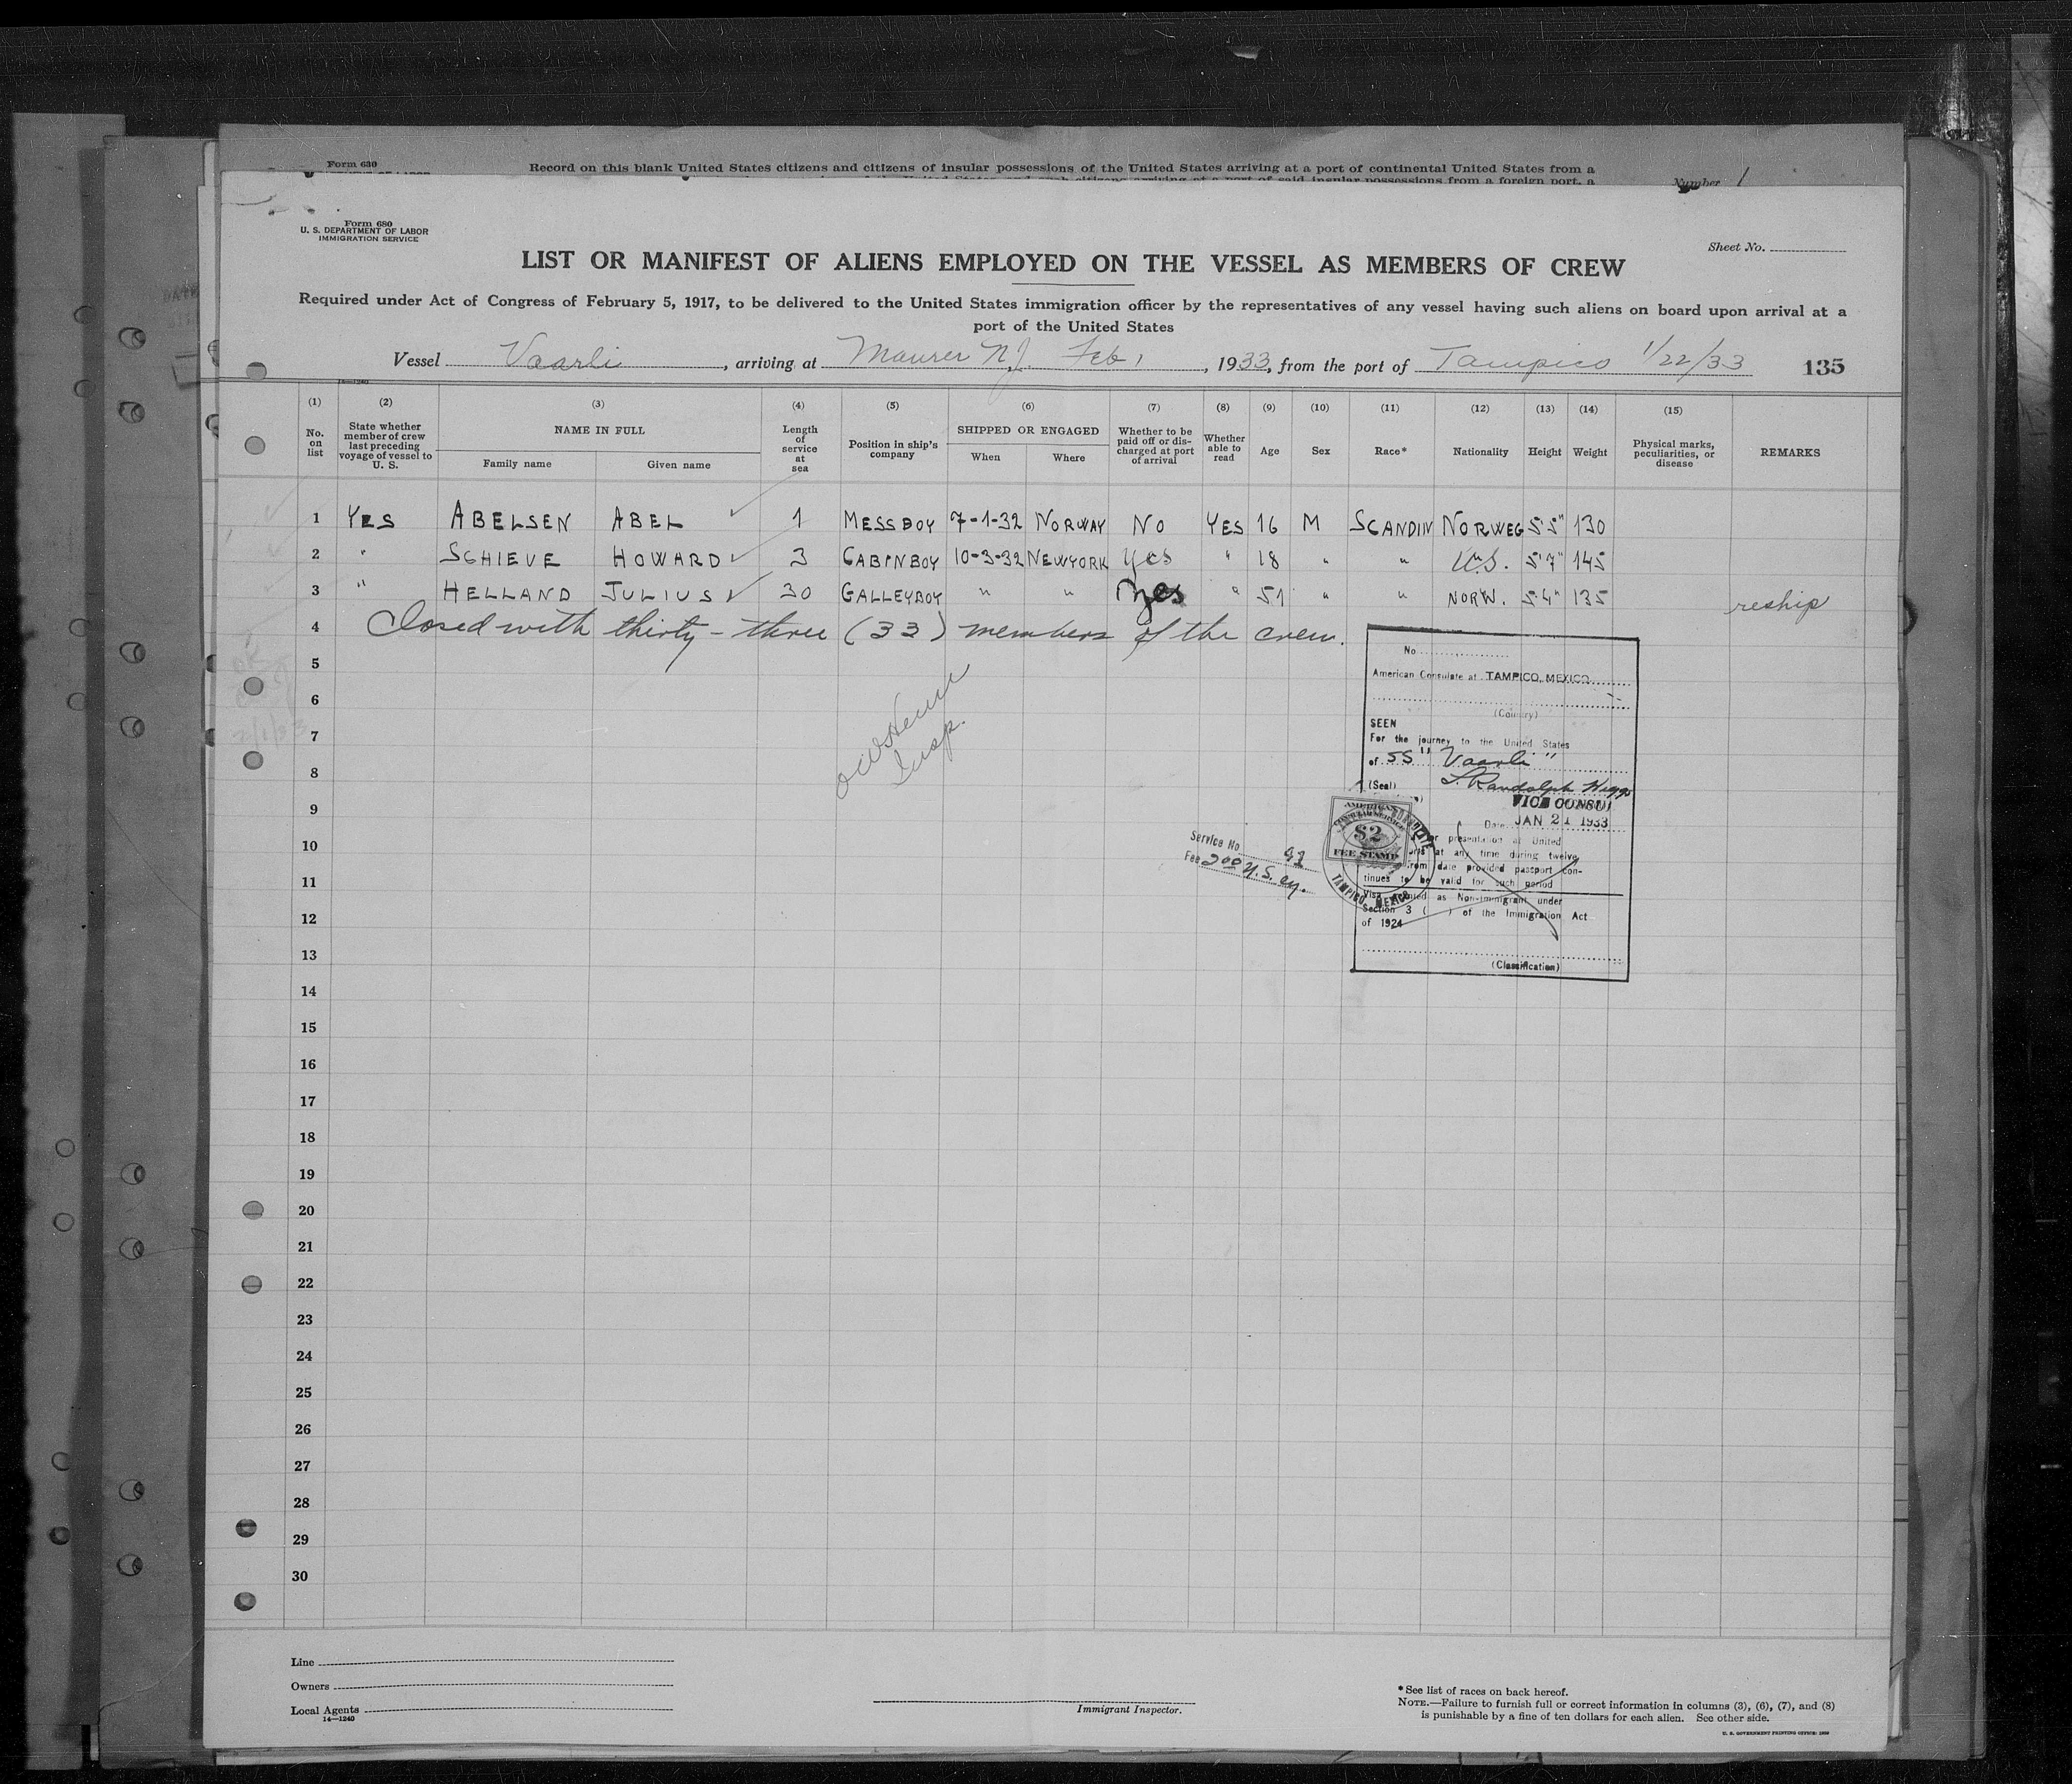 Form 630
Record on this blank United States citizens and citizens of insular possessions of the United States arriving at a port of continental United States from a
Number 1
Form 680
U. S. DEPARTMENT OF LABOR
IMMIGRATION SERVICE
Sheet No.
LIST OR MANIFEST OF ALIENS EMPLOYED ON THE VESSEL AS MEMBERS OF CREW
Required under Act of Congress of February 5, 1917, to be delivered to the United States immigration officer by the representatives of any vessel having such aliens on board upon arrival at a
port of the United States
Vessel Vaarli, arriving at Maurer N.J. Feb 1, 1933, from the port of Tampico 1/22/33 135
(1) (2) (3) (4) (5) (6) (7) (8) (9) (10) (11) (12) (13) (14) (15)
No. on list State whether member of crew last preceding voyage of vessel to U. S. NAME IN FULL Family name Given name Length of service at sea Position in ship's company SHIPPED OR ENGAGED When Where Whether to be paid off or discharged at port of arrival Whether able to read Age Sex Race* Nationality Height Weight Physical marks, peculiarities, or disease REMARKS
1 YES ABELSEN ABEL 1 MESSBOY 7-1-32 NORWAY NO YES 16 M SCANDIN NORWEG 5'5" 130
2 " SCHIEVE HOWARD 3 CABINBOY 10-3-32 NEWYORK Yes " 18 " " U.S. 5'7" 145
3 " HELLAND JULIUS 30 GALLEYBOY " " Yes " 51 " " NORW. 5'4" 135 reship
4 Closed with thirty-three (33) members of the crew.
5
6
7
8
9
10
11
12
13
14
15
16
17
18
19
20
21
22
23
24
25
26
27
28
29
30
Insp.
2/1/33
No.
American Consulate at TAMPICO, MEXICO
(Country)
SEEN
For the journey to the United States
of SS "Vaarli"
(Seal) L. Randolph Higgs
VICE CONSUL
Date JAN 21 1933
presentation at United
at any time during twelve
from date provided passport con-
tinues to be valid for such period
Visa as Non-immigrant under
Section 3 ( ) of the Immigration Act
of 1924
(Classification)
AMERICAN
$2
FEE STAMP
TAMPICO, MEXICO
Service No. 92
Fee 2.00 U.S. cy.
Line
Owners
Local Agents
14—1240
Immigrant Inspector.
*See list of races on back hereof.
NOTE.—Failure to furnish full or correct information in columns (3), (6), (7), and (8)
is punishable by a fine of ten dollars for each alien. See other side.